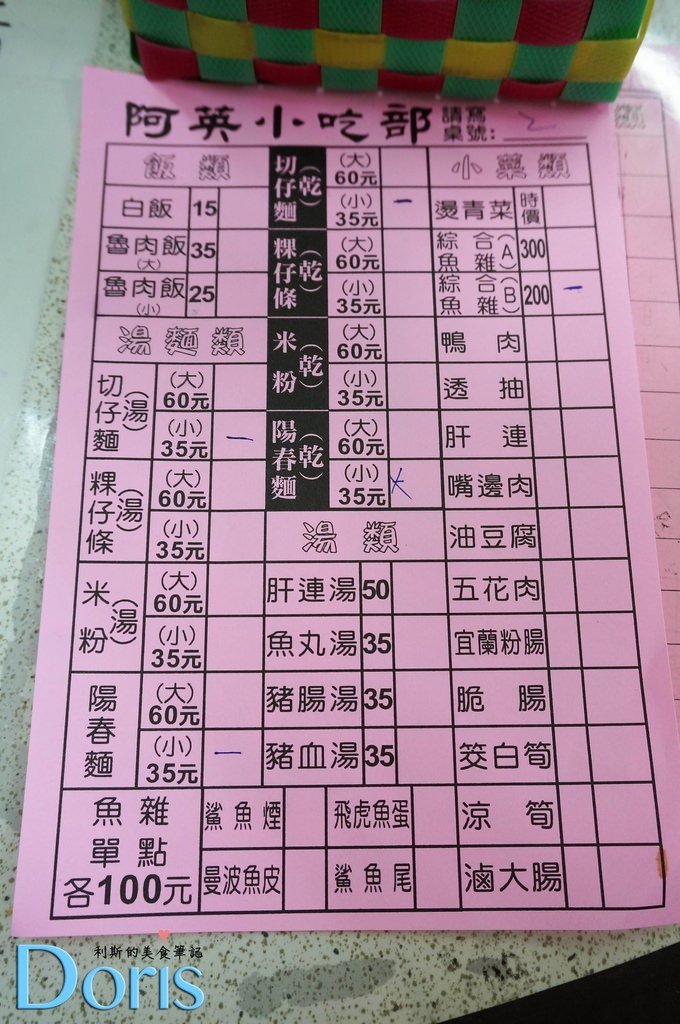 阿英小吃部 請寫桌號: 2
飯類
白飯 15
魯肉飯(大) 35
魯肉飯(小) 25
湯麵類
切仔麵(湯) (大)60元
(小)35元 一
粿仔條(湯) (大)60元
(小)35元
米粉(湯) (大)60元
(小)35元
陽春麵 (大)60元
(小)35元 一
切仔麵(乾) (大)60元
(小)35元 一
粿仔條(乾) (大)60元
(小)35元
米粉(乾) (大)60元
(小)35元
陽春麵(乾) (大)60元
(小)35元
湯類
肝連湯 50
魚丸湯 35
豬腸湯 35
豬血湯 35
小菜類
燙青菜 時價
綜合(A)魚雜 300
綜合(B)魚雜 200 一
鴨肉
透抽
肝連
嘴邊肉
油豆腐
五花肉
宜蘭粉腸
脆腸
筊白筍
涼筍
滷大腸
魚雜單點各100元
鯊魚煙 飛虎魚蛋
曼波魚皮 鯊魚尾
類
利斯的美食筆記
Doris